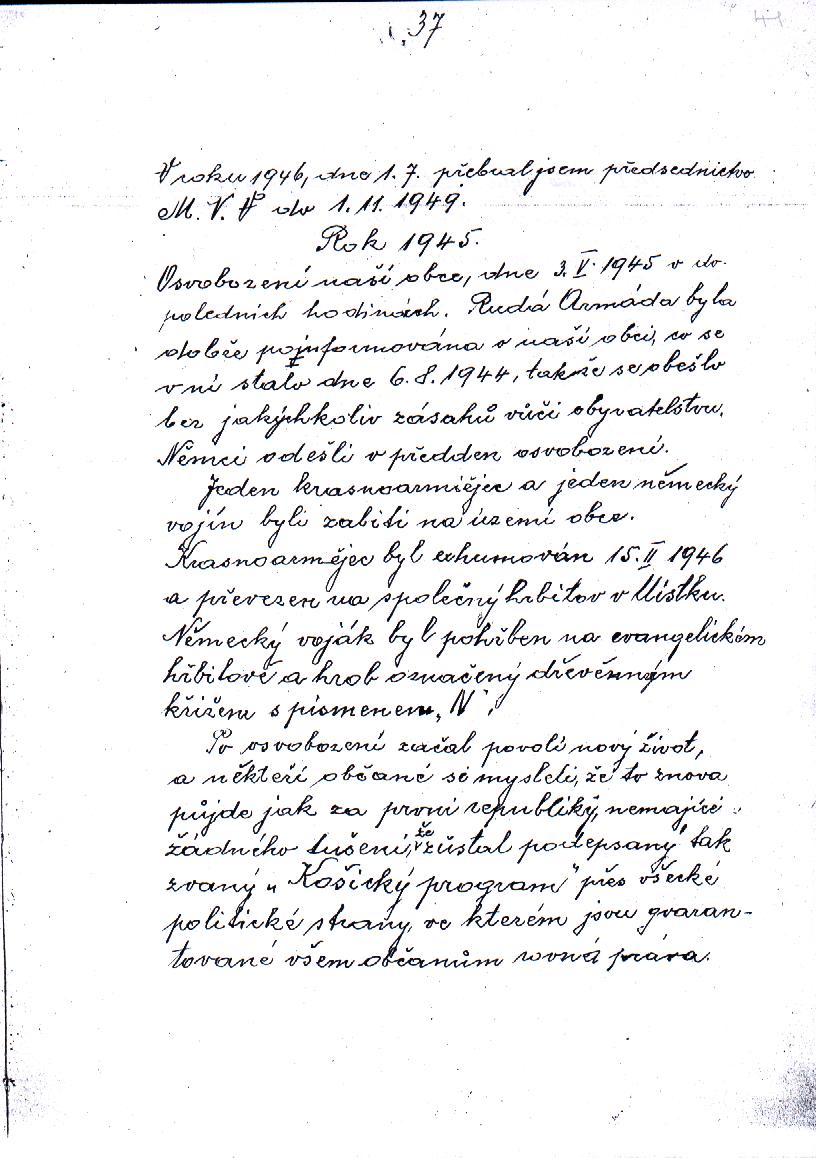 37
41
V roku 1946, dne 1. 7. přebral jsem předsednictvo
M. V. do 1. 11. 1949.
Rok 1945.
Osvobození naší obce, dne 3. V. 1945 v do-
poledních hodinách. Rudá Armáda byla
dobře poinformována o naší obci, co se
v ní stalo dne 6. 8. 1944, takže se obešlo
bez jakýchkoliv zásahů vůči obyvatelstvu.
Němci odešli v předden osvobození.
Jeden krasnoarmějec a jeden německý
vojín byli zabiti na území obce.
Krasnoarmějec byl exhumován 15. II 1946
a převezen na společný hřbitov v Místku.
Německý voják byl pohřben na evangelickém
hřbitově a hrob označený dřevěnným
křížem s písmenem „N".
Po osvobození začal povolí nový život,
a někteří občané si mysleli, že to znova
půjde jak za první republiky, nemajíce
žádného tušení, že zůstal podepsaný tak
zvaný „Košický program" přes všecké
politické strany, ve kterém jsou gvaran-
tované všem občanům rovná práva.